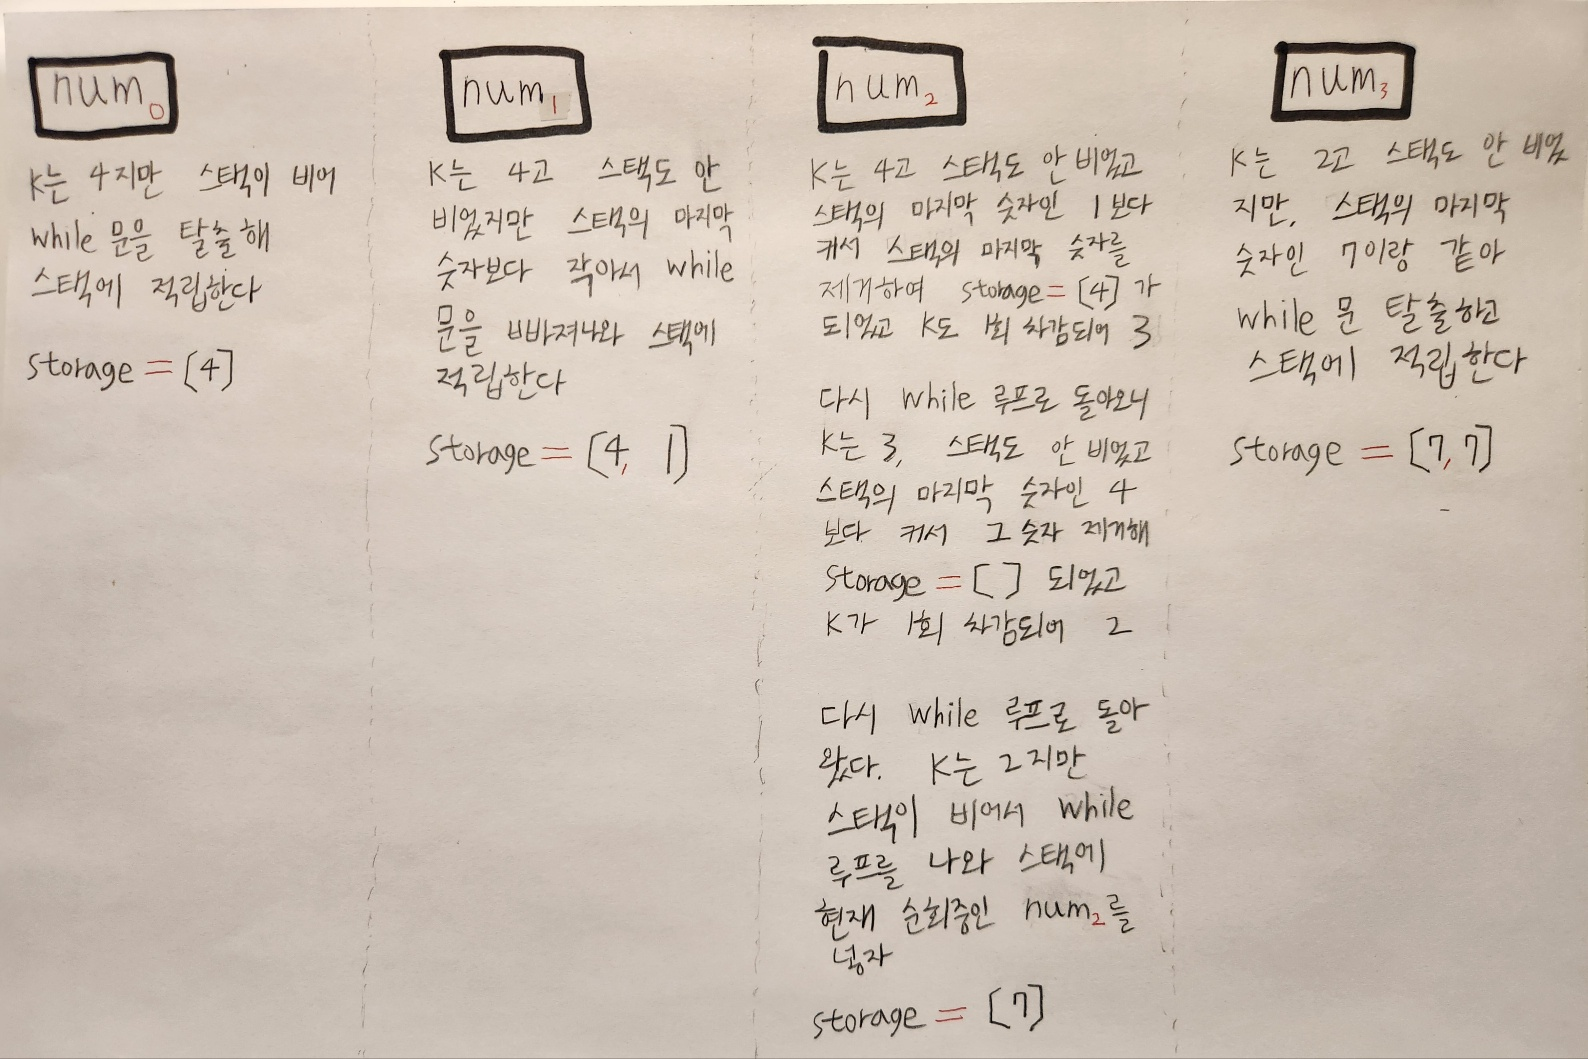 num0
K는 4지만 스택이 비어
while 문을 탈출해
스택에 적립한다
storage = [4]
num1
K는 4고 스택도 안
비었지만 스택의 마지막
숫자보다 작아서 while
문을 빠져나와 스택에
적립한다
storage = [4, 1]
num2
K는 4고 스택도 안 비었고
스택의 마지막 숫자인 1보다
커서 스택의 마지막 숫자를
제거하여 storage = [4] 가
되었고 K도 1회 차감되어 3
다시 while 루프로 돌아오니
K는 3, 스택도 안 비었고
스택의 마지막 숫자인 4
보다 커서 그 숫자 제거해
storage = [ ] 되었고
K가 1회 차감되어 2
다시 while 루프로 돌아
왔다. K는 2지만
스택이 비어서 while
루프를 나와 스택에
현재 순회중인 num2를
넣자
storage = [7]
num3
K는 2고 스택도 안 비었
지만, 스택의 마지막
숫자인 7이랑 같아
while 문 탈출하고
스택에 적립한다
storage = [7, 7]